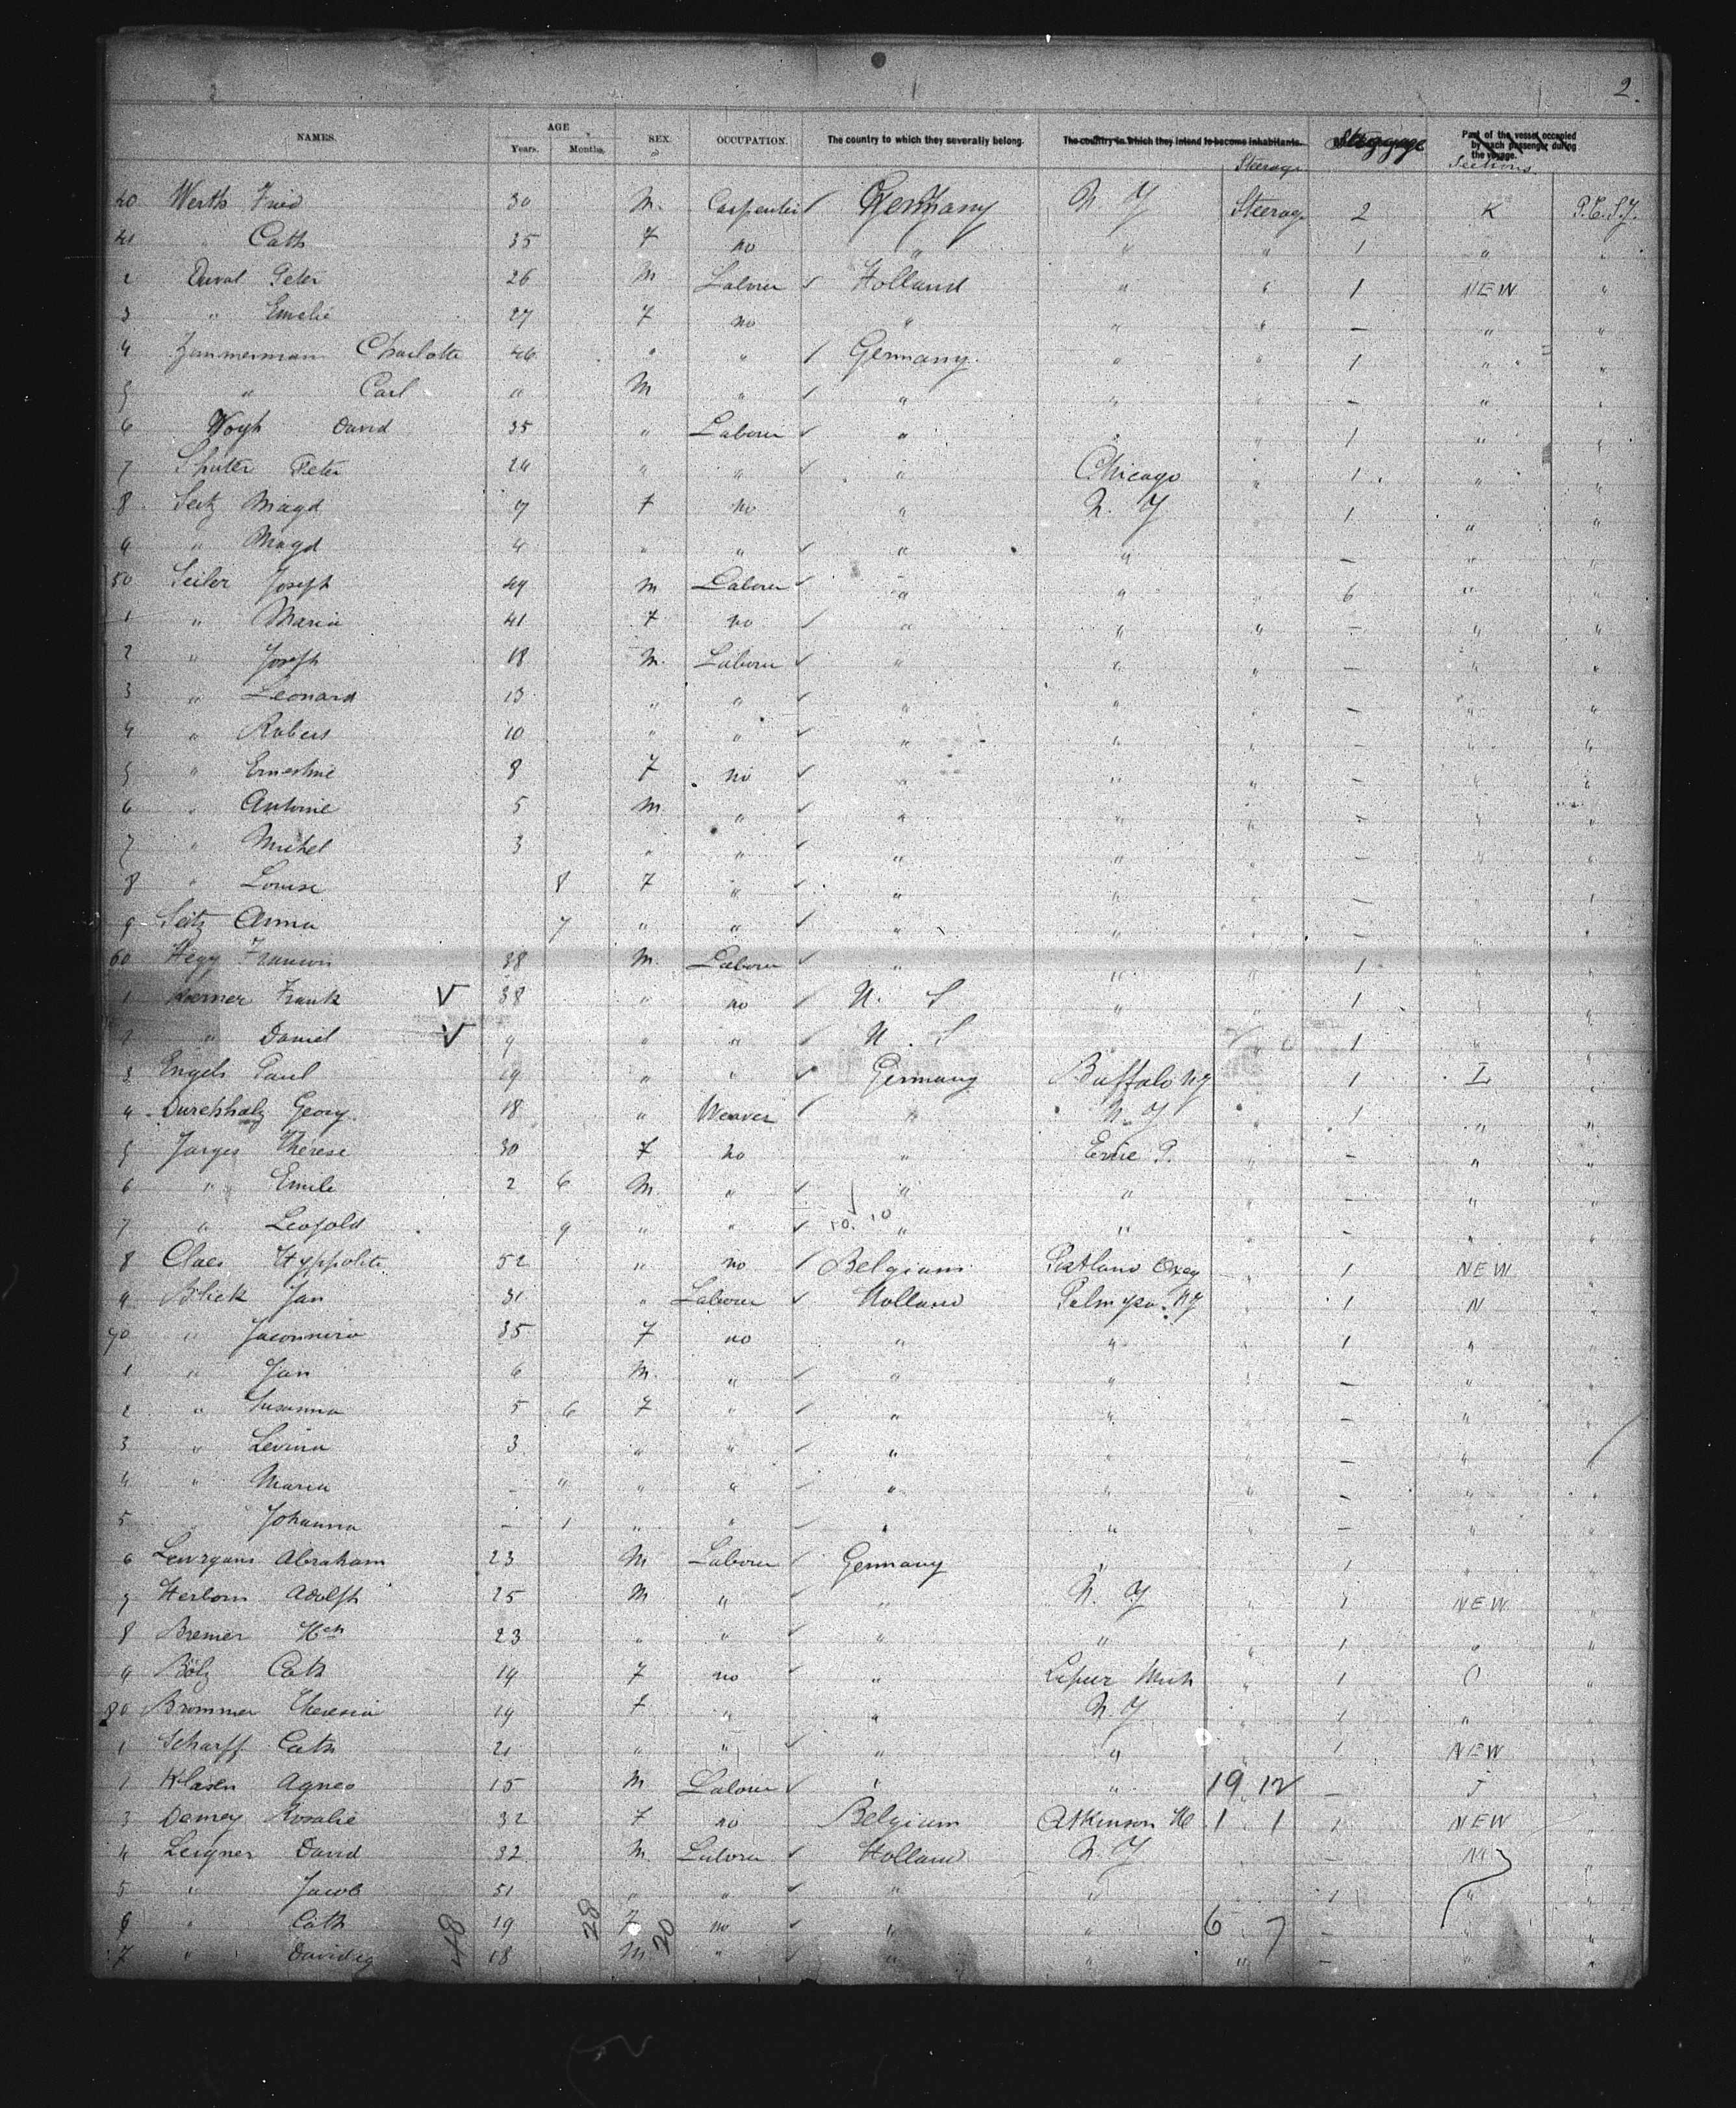 2.
NAMES. AGE Years. Months. SEX. OCCUPATION. The country to which they severally belong. The country in which they intend to become inhabitants. Steerage Part of the vessel occupied by each passenger during the voyage. Sections
40 Werth Fried 30 M. Carpenter Germany N Y Steerag. 2 K
41 " Cath 35 F no " " " 1 " "
2 Duval Peter 26 M Labour Holland " " 1 NEW "
3 " Emelie 27 F no " " " — " "
4 Zimmerman Charlotte 46 " " Germany. " " 1 " "
5 " Carl " M " " " " — " "
6 David 35 " Labour " " " 1 " "
7 Peter 24 " " " Chicago " 1 " "
8 Seitz Magd F no " N. Y " 1 " "
9 " Magd 4 " " " " — " "
50 Seiler Joseph 49 M Labour " " " 6 " "
1 " Maria 41 F no " " " — " "
2 " Joseph 18 M. Labour " " " — " "
3 " Leonard 13 " " " " " — " "
4 " Robert 10 " " " " " — " "
5 " Ernestine 8 F no " " " — " "
6 " Antoine 5 M " " " " — " "
7 " Michel 3 " " " " — " "
8 " Louise 8 F " " " — "
9 Seitz Anna 7 " " " " " — " "
60 Hegy 38 M. Labour " " " 1 " "
1 Frank V 38 " no " 1 " "
2 " Daniel V " " " 1 " "
3 Engels Paul 19 " " Germany Buffalo NY 1 L "
4 Georg. 18 " Weaver " N. Y " 1 " "
5 Jorges Therese 30 F no " Erie P. " — " "
6 " Emile 2 6 M. " " " — " "
7 " Leopold 9 " " 10. 10 " " — " "
8 Claes Hyppolite 52 " no Belgium Portland Oreg " 1 NEW "
9 Blick Jan 31 " Labour Holland Palmyra. NY " 1 N "
70 " 35 F no " " 1 " "
1 " Jan 6 M. " " " — " "
2 " Susanna 5 6 F " " " — " "
3 " Levina 3 " " " " — " "
4 " Maria — " " " " " " — " "
5 " Johanna — 1 " " " " — "
6 Abraham 23 M Labour Germany " 1 "
7 Herborn Adolph 25 M " " N. Y " 1 NEW "
8 Bremer Hch 23 " " " " " 1 " "
9 Bölz Cath 19 F no " Lapeer Mich " 1 O "
80 Brommer Theresia 19 F " " N. Y " 1 " "
1 Scharff Cath 21 " " " " " 1 NEW "
1 Klasen Agnes 15 M Labour " " 19 12 — J
3 Demey Rosalie 32 F no Belgium Atkinson 1 1 1 NEW
4 Leigner David 32 M. Labour Holland N. Y — M
5 " Jacob 51 " " " " 1 " "
6 " Cath 19 F no " " 6 7 — " "
7 " David 18 M. " " " " — " "
48 28 20